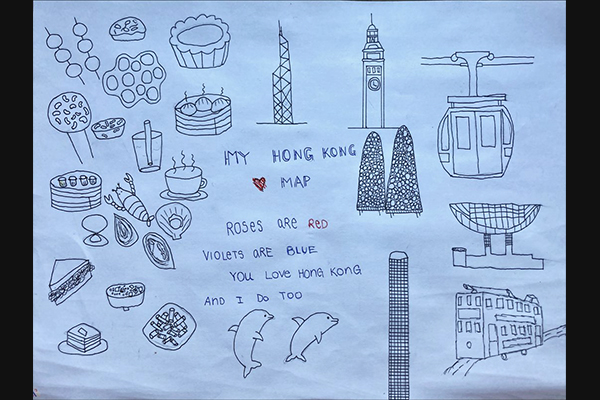 MY HONG KONG
MAP
ROSES ARE RED
VIOLETS ARE BLUE
YOU LOVE HONG KONG
AND I DO TOO